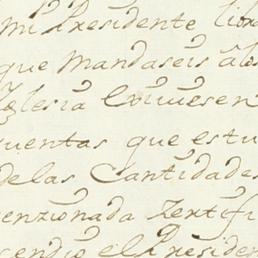 mi Presidente libre
que Mandaseis â los
Iglesia
quentas que estu
delas Cantidades
enzionada Zertifi
cendio el Presiden